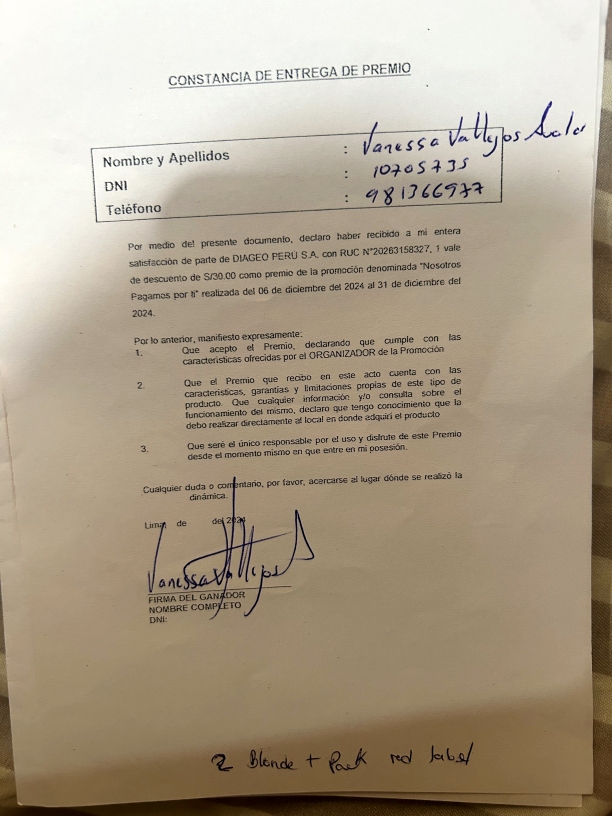 CONSTANCIA DE ENTREGA DE PREMIO
Nombre y Apellidos : Vanessa Vallejos
DNI : 10705735
Teléfono : 981366977
Por medio del presente documento, declaro haber recibido a mi entera
satisfacción de parte de DIAGEO PERÚ S.A. con RUC N°20263158327, 1 vale
de descuento de S/30.00 como premio de la promoción denominada "Nosotros
Pagamos por ti" realizada del 06 de diciembre del 2024 al 31 de diciembre del
2024.
Por lo anterior, manifiesto expresamente:
1. Que acepto el Premio, declarando que cumple con las
características ofrecidas por el ORGANIZADOR de la Promoción
2. Que el Premio que recibo en este acto cuenta con las
características, garantías y limitaciones propias de este tipo de
producto. Que cualquier información y/o consulta sobre el
funcionamiento del mismo, declaro que tengo conocimiento que la
debo realizar directamente al local en donde adquirí el producto
3. Que seré el único responsable por el uso y disfrute de este Premio
desde el momento mismo en que entre en mi posesión.
Cualquier duda o comentario, por favor, acercarse al lugar dónde se realizó la
dinámica.
Lima, de del 2024
Vanessa Vallejos
FIRMA DEL GANADOR
NOMBRE COMPLETO
DNI:
2 Blonde + Pack red label